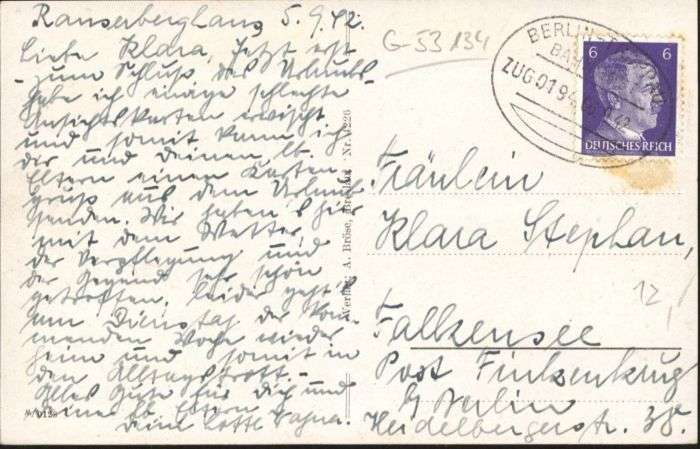 5.9.42.
Liebe Klara, Jetzt erst
zum Schluß des Urlaubs
habe ich einige schlechte
Ansichtskarten erwischt
und somit kann ich
dir und deinen lb.
Eltern einen Karten-
gruß aus dem Urlaub
senden. Wir haben's hier
mit dem Wetter,
der Verpflegung und
der Gegend sehr schön
getroffen, leider geht's
am Dienstag der kom-
menden Woche wieder
heim und somit in
den Alltagstrott. -
Alles Gute für dich und
deine lb. Eltern
deine Lotte
Verlag A. Bröse, Nr. V226
G-53 134
BERLIN
BAH
ZUG 0194
6 6
DEUTSCHES REICH
Fräulein
Klara Stephan,
12,
Falkensee
Post Finkenkrug
b/ Berlin
Heidelbergerstr. 38.